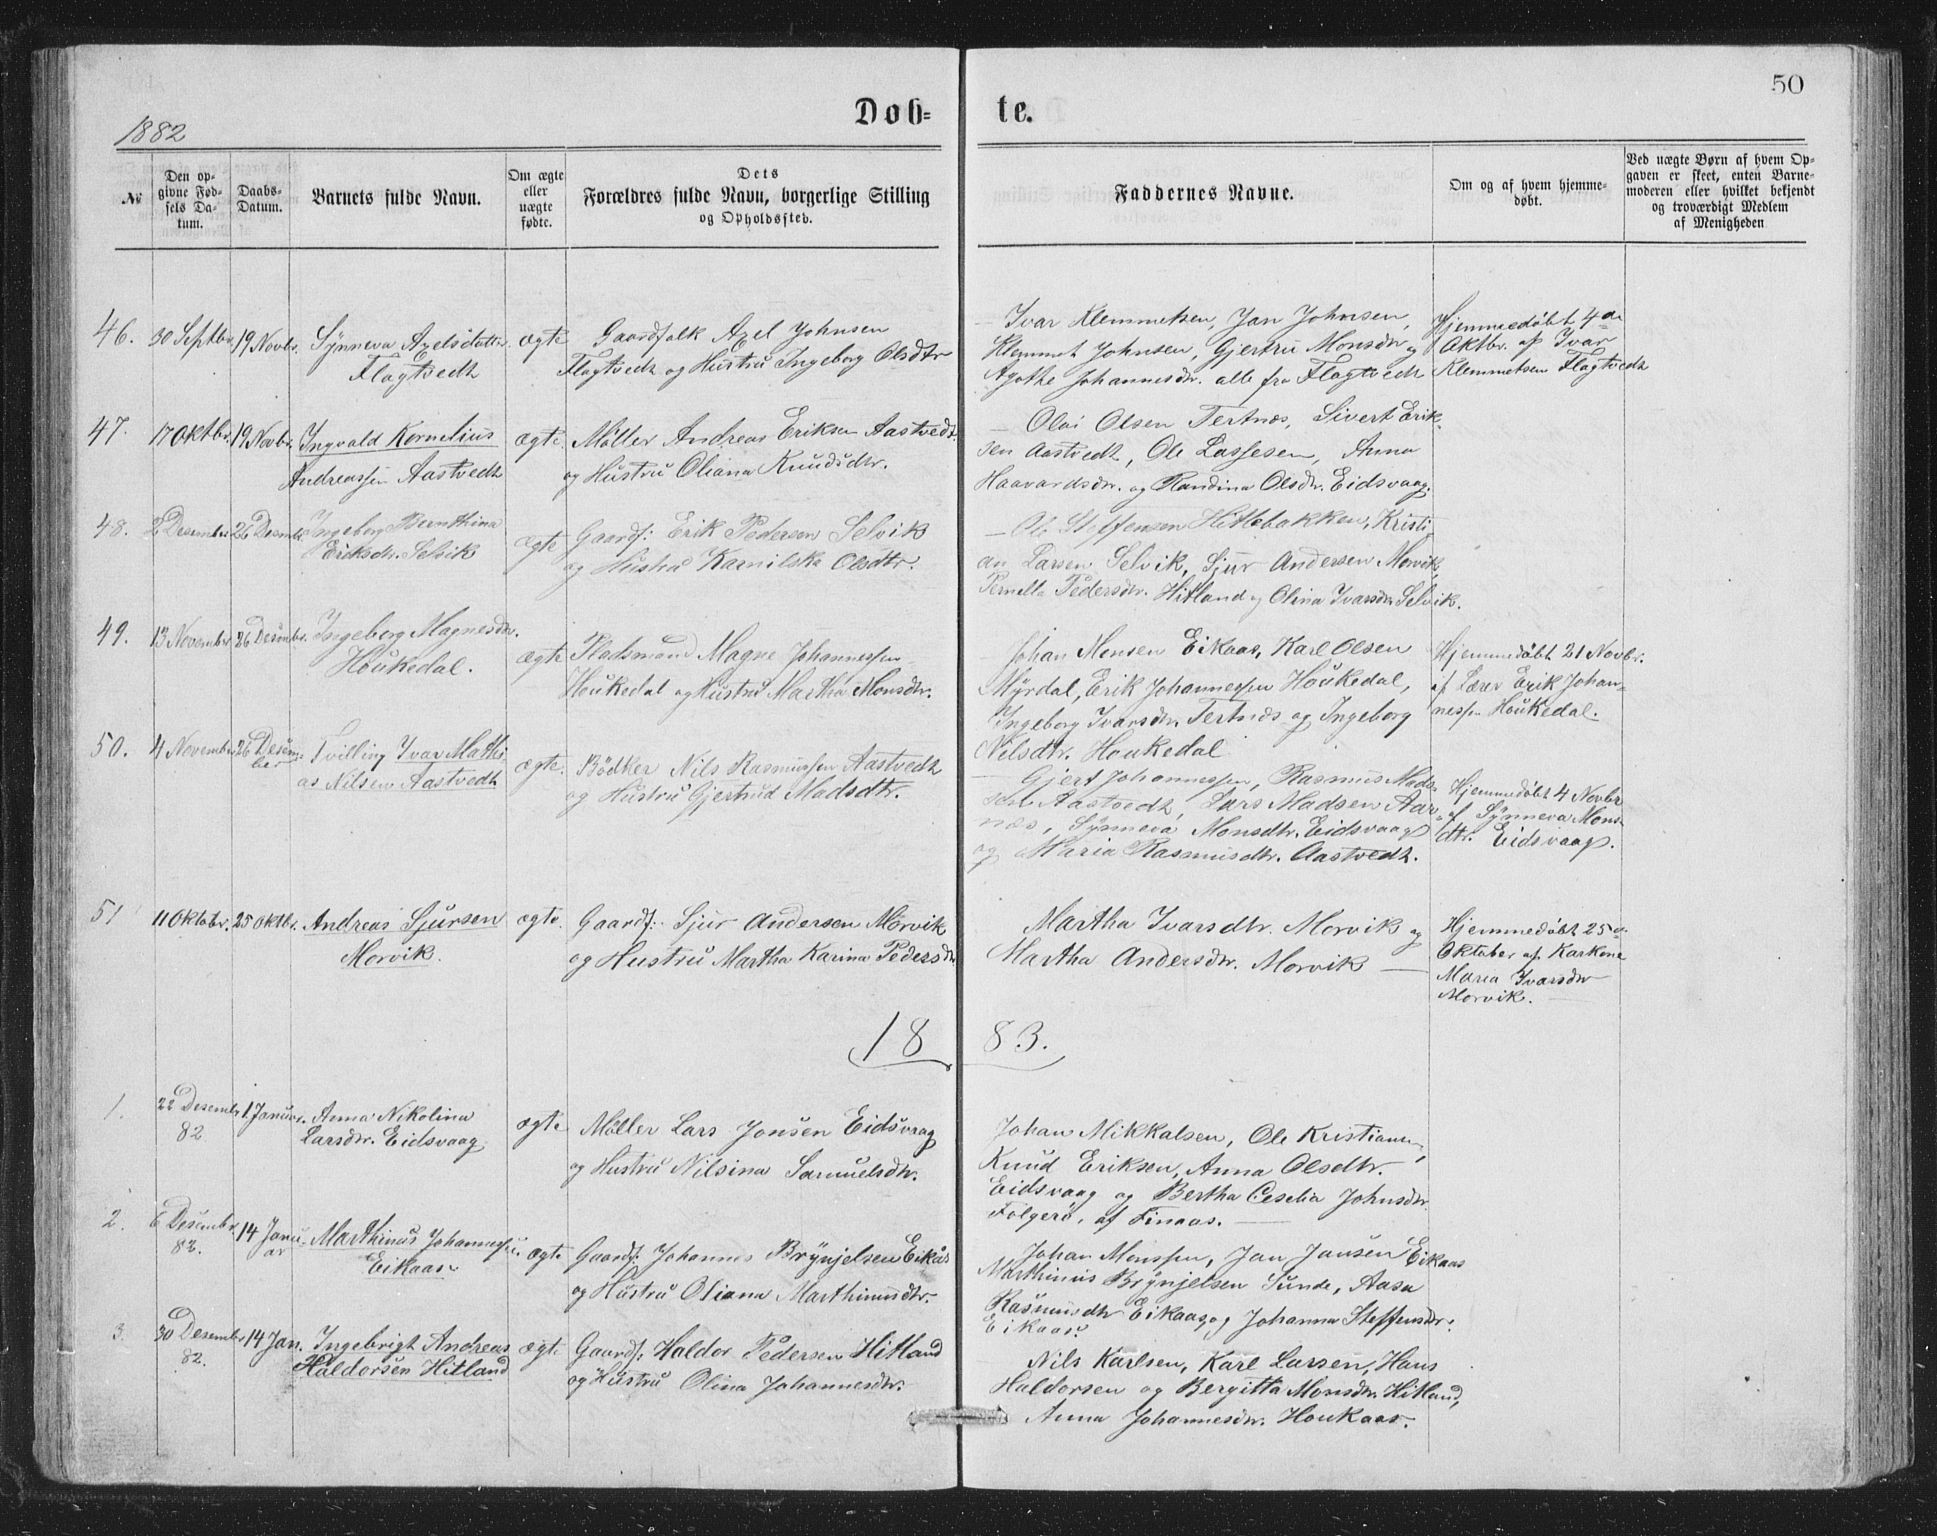 50
1882
Dob=
te.
№
Den op-
givne Fød-
sels Da-
tum.
Daabs-
Datum.
Barnets fulde Navn.
Om ægte
eller
uægte
fødte.
Dets
Forældres fulde Navn, borgerlige Stilling
og Opholdssted.
Faddernes Navne.
Om og af hvem hjemme-
døbt.
Ved uægte Børn af hvem Op-
gaven er skeet, enten Barne-
moderen eller hvilket bekjendt
og troværdigt Medlem
af Menigheden
46. 30 Septbr. 19 Novbr. Synneva Axelsdatter
Flagtvedt
ægte
Gaardfolk Axel Johnsen
Flagtvedt og Hustru Ingeborg Olsdtr
Ivar Klemmetsen, Jan Johnsen,
Klemmet Johnsen, Gjertru Monsdtr og
Agothe Johannesdtr. alle fra Flagtvedt
Hjemmedøbt 4de
Oktbr. af Ivar
Klemmetsen Flagtvedt
47. 17 Oktbr. 19 Novbr. Ingvald Kornelius
Andreassen Aastvedt
ægte
Møller Andreas Eriksen Aastvedt
og Hustru Oliana Knudsdtr.
Olai Olsen Tertnæs, Sivert Erik-
sen Aastvedt, Ole Lassesen, Anna
Haavardsdtr. og Randina Olsdtr. Eidsvaag.
48. 2 Desember 26 Desembr. Ingeborg Bernthina
Eriksdtr. Selvik
ægte
Gaardf: Erik Pedersen Selvik
og Hustru Karnilska Olsdtr.
Ole Steffensen Hitlebakken, Kristi-
an Larsen Selvik, Sjur Andersen Morvik,
Pernella Pedersdtr. Hitland og Olina Ivarsdtr Selvik.
49. 13 November 26 Desembr. Ingeborg Magnesdtr.
Houkedal.
ægte
Pladsmand Magne Johannessen
Houkedal og Hustru Martha Monsdtr.
Johan Monsen Eikaas, Karl Olsen
Myrdal, Erik Johannessen Houkedal,
Ingeborg Ivarsdtr. Tertnæs og Ingeborg
Nilsdtr. Houkedal
Hjemmedøbt 21 Novbr.
af Lærer Erik Johan-
nessen Houkedal.
50. 4 November 26 Desem-
ber
Tvilling Ivar Mathi
as Nilsen Aastvedt
ægte.
Bødker Nils Rasmussen Aastvedt
og Hustru Gjertrud Madsdtr.
Gjert Johannessen, Rasmus Mad-
sen Aastvedt, Lars Madsen Aar-
næs, Synneva Monsdtr. Eidsvaag
og Maria Rasmusdtr. Aastvedt.
Hjemmedøbt 4 Novbr
af Synneva Mons-
dtr. Eidsvaag.
51 11 Oktobr. 25 Oktbr. Andreas Sjursen
Morvik.
ægte
Gaardf: Sjur Andersen Morvik
og Hustru Martha Karina Pedersdtr
Martha Ivarsdtr. Morvik og
Martha Andersdtr. Morvik
Hjemmedøbt 25de
Oktober af Karkone
Maria Ivarsdtr
Morvik.
1883.
1. 22 Desembr
82
1 Januar. Anna Nikolina
Larsdtr. Eidsvaag
ægte
Møller Lars Jonsen Eidsvaag
og Hustru Nilsina Samuelsdtr.
Johan Mikkalsen, Ole Kristiansen,
Knud Eriksen, Anna Olsdtr.
Eidsvaag og Bertha Ceselia Johnsdtr
Folgerö, af Finaas.
2. 6 Desembr.
82.
14 Janu-
ar
Marthinus Johannessen.
Eikaas
ægte
Gaardf: Johannes Brynjelsen Eikås
og Hustru Oliana Marthinusdtr.
Johan Monssen, Jan Jansen Eikaas
Marthinus Brynjelsen Sunde, Aasa
Rasmusdtr Eikaas og Johanna Steffensdtr.
Eikaas.
3. 30 Desembr
82.
14 Jan. Ingebrigt Andreas
Haldorsen Hitland
ægte
Gaardf: Haldor Pedersen Hitland
og Hustru Olina Johannesdtr.
Nils Karlsen, Karl Larsen, Hans
Haldorsen og Bergitta Monsdtr. Hitland,
Anna Johannesdtr. Houkaas.